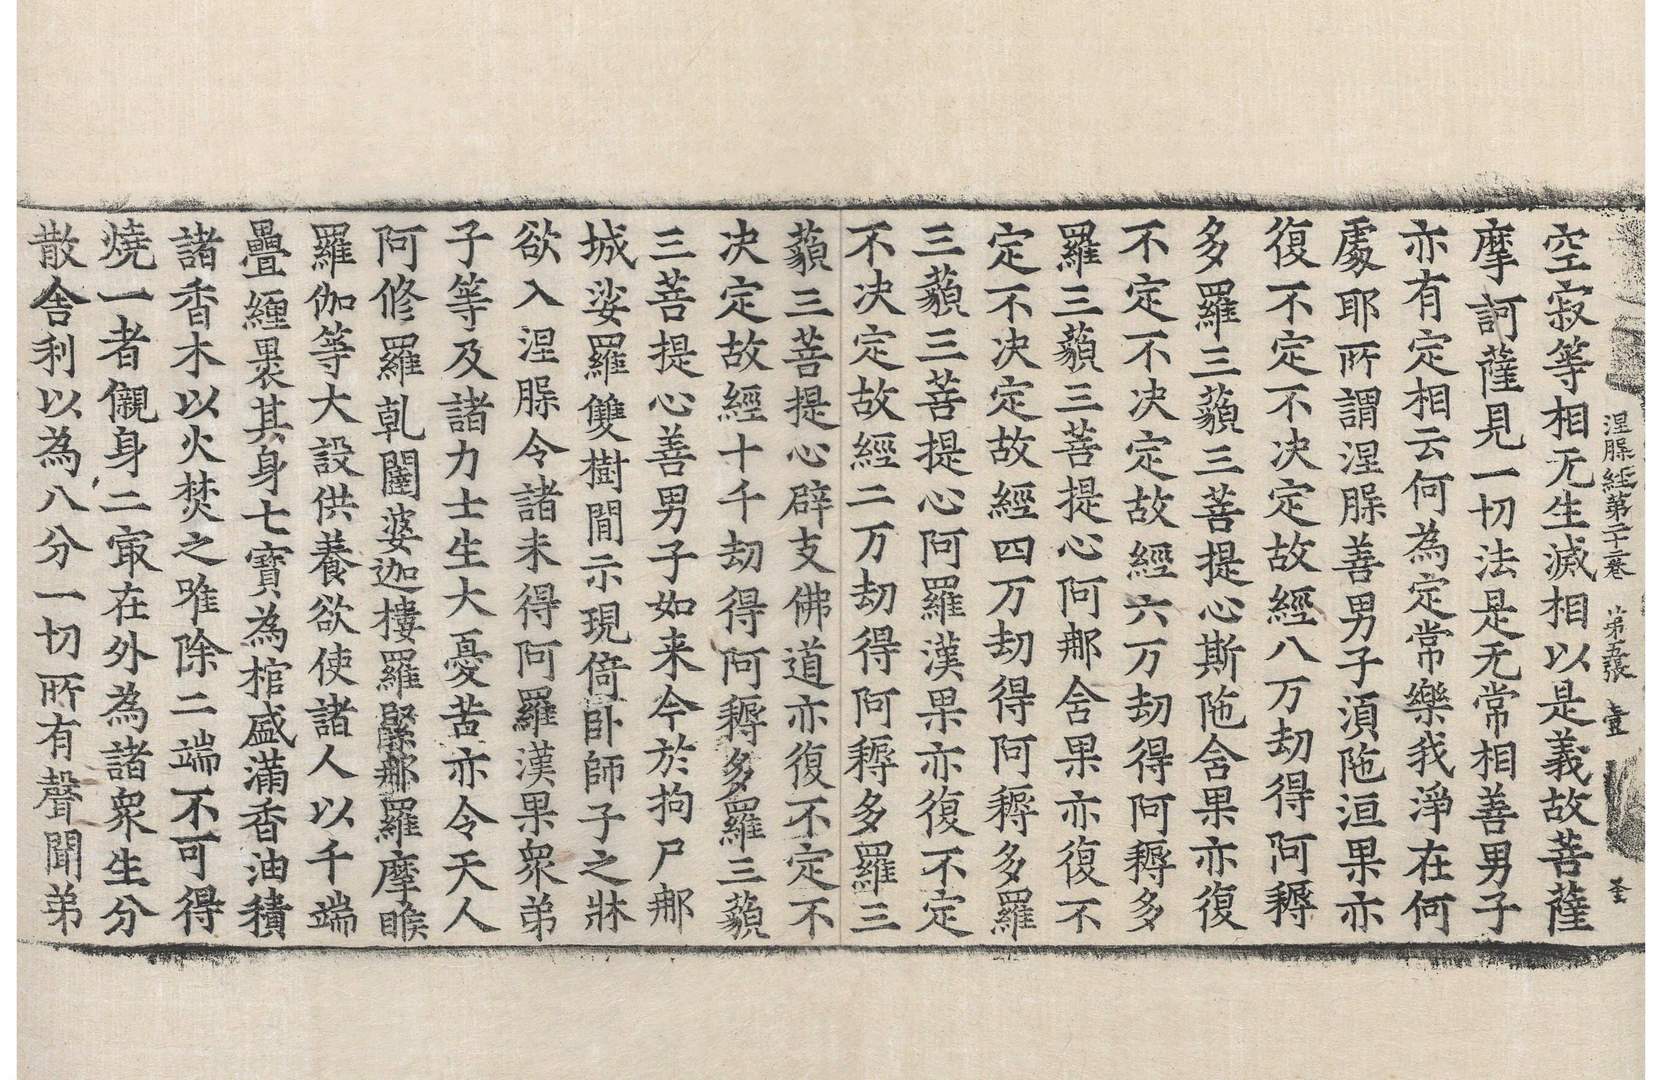 涅脲經第二十三卷 第五張 壹
空寂等相无生滅相以是義故菩薩
摩訶薩見一切法是无常相善男子
亦有定相云何為定常樂我淨在何
處耶所謂涅脲善男子湏陁洹果亦
復不定不决定故經八万劫得阿耨
多羅三藐三菩提心斯陁含果亦復
不定不决定故經六万劫得阿耨多
羅三藐三菩提心阿那含果亦復不
定不决定故經四万劫得阿耨多羅
三藐三菩提心阿羅漢果亦復不定
不决定故經二万劫得阿耨多羅三
藐三菩提心辟支佛道亦復不定不
决定故經十千劫得阿耨多羅三藐
三菩提心善男子如来今於拘尸那
城娑羅雙樹間示現倚卧師子之牀
欲入涅脲令諸未得阿羅漢果衆弟
子等及諸力士生大憂苦亦令天人
阿修羅乹闥婆迦樓羅緊那羅摩睺
羅伽等大設供養欲使諸人以千端
疊纏褁其身七寳為棺盛滿香油積
諸香木以火焚之唯除二端不可得
燒一者儭身二㝡在外為諸衆生分
散舍利以為八分一切所有聲聞弟